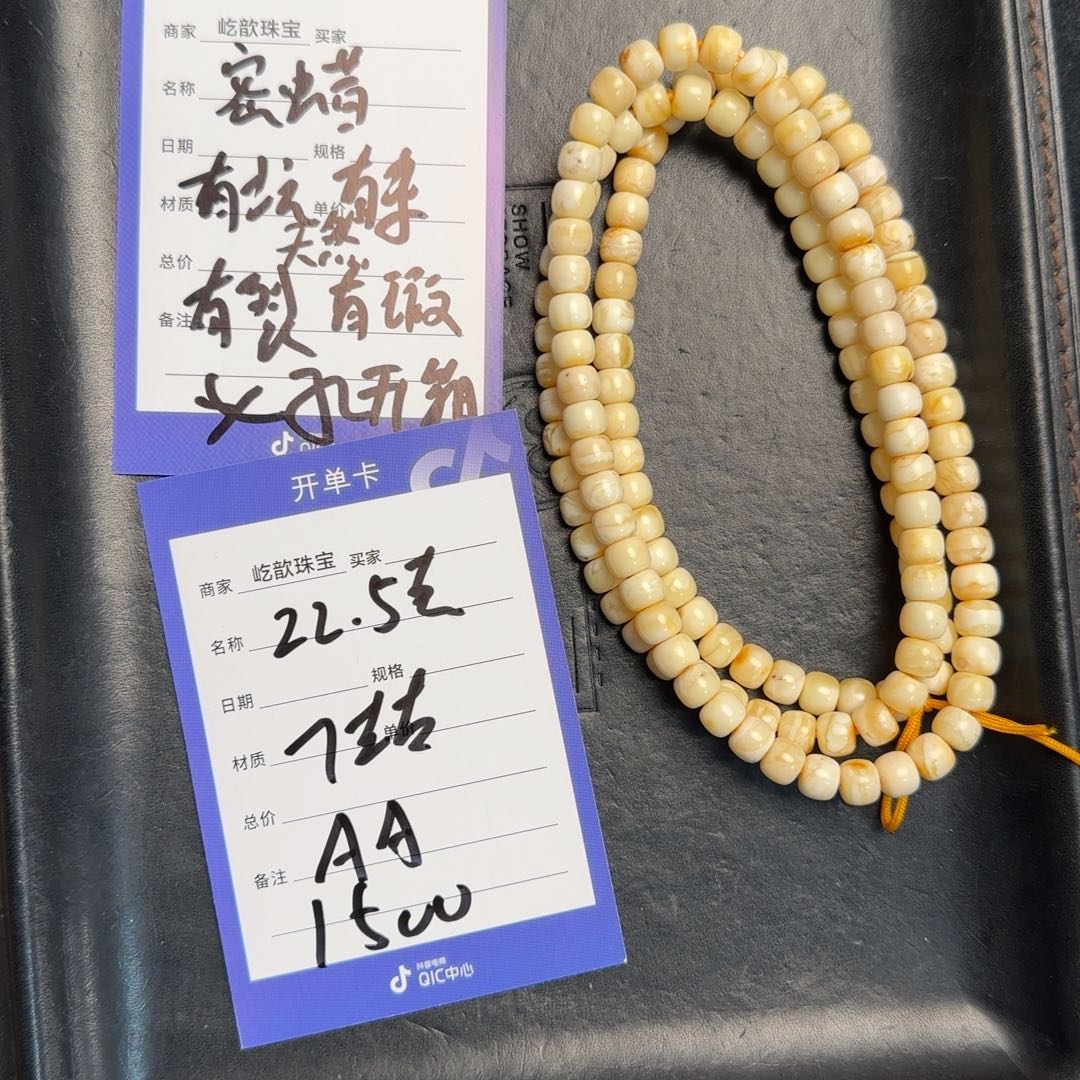 商家 屹歆珠宝 买家
名称 密蜡
日期 规格
材质 有坑 单价 有朱
天然
总价
有裂 有瑕
备注
大孔开箱
SHOW
开单卡
商家 屹歆珠宝 买家
名称 22.5克
日期 规格
材质 7结 单价
总价
AA
备注
1500
抖音电商
QIC中心